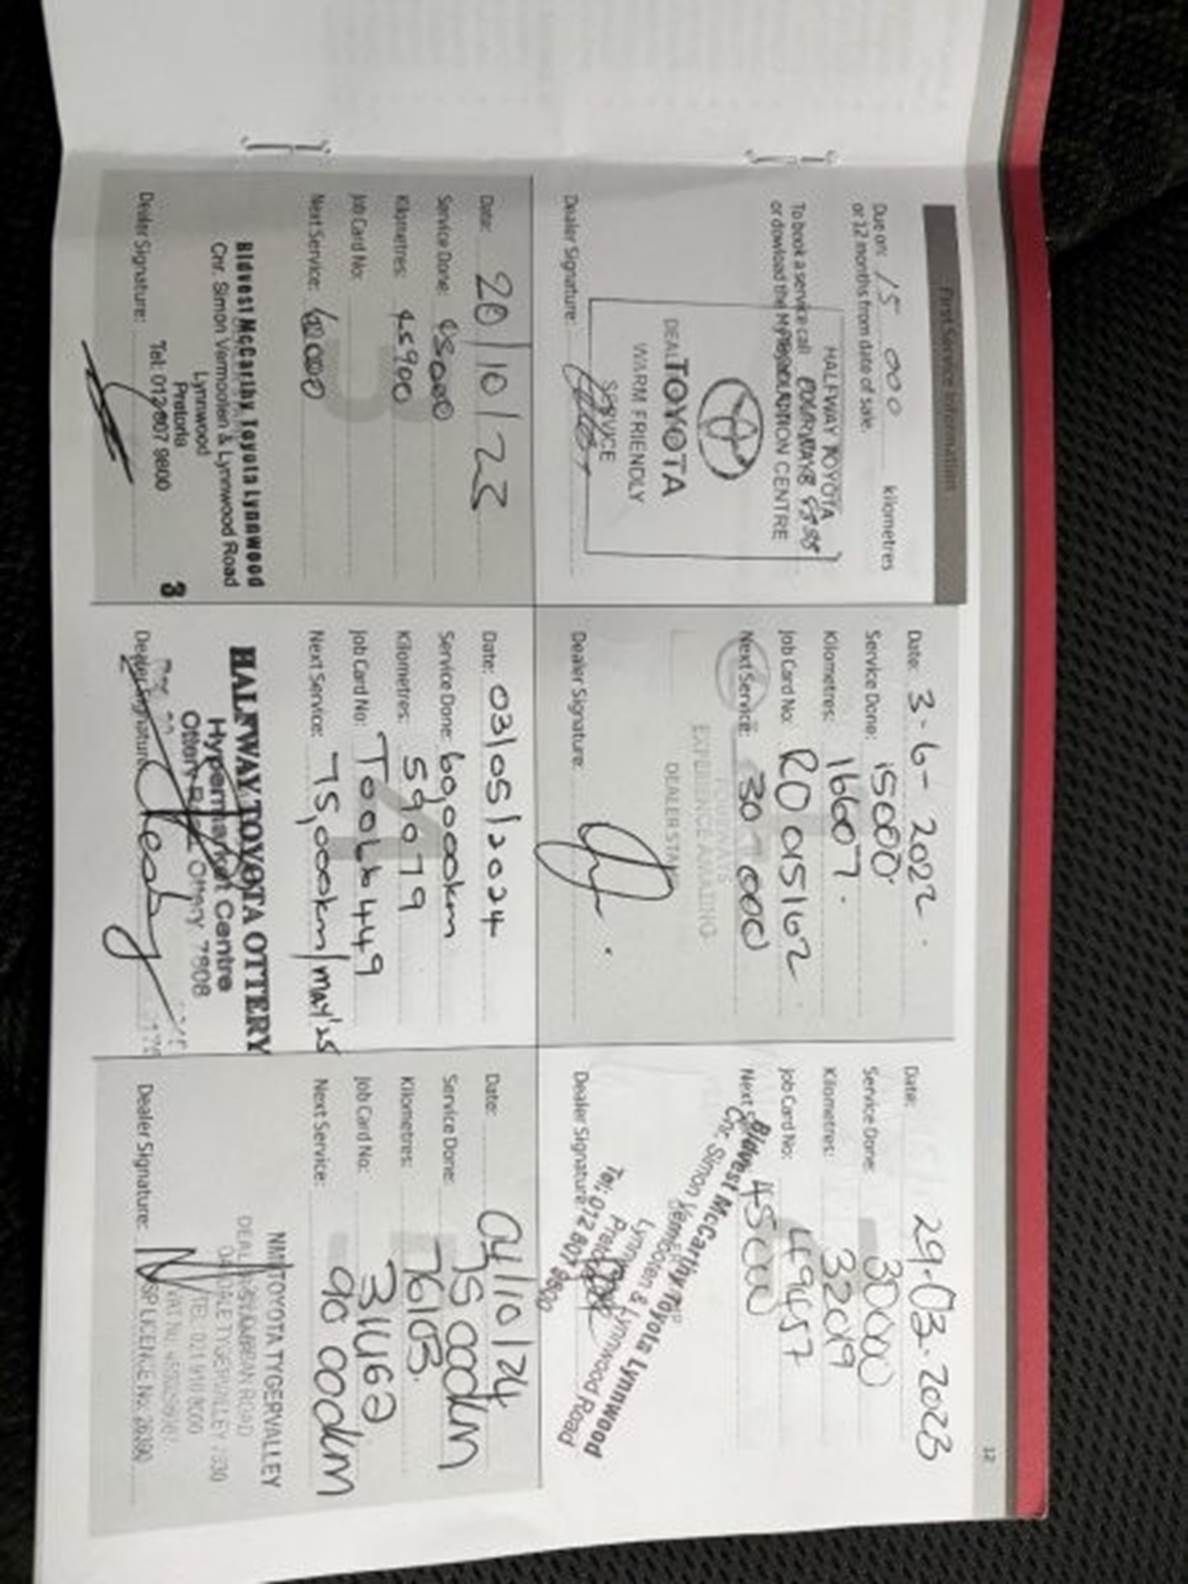 12
First Service Information
Due on: 15 000 kilometres
or 12 months from date of sale.
To book a service call
or dowload the
HALFWAY TOYOTA
CENTRE
TOYOTA
WARM FRIENDLY
SERVICE
Dealer Signature:
Date: 3-6-2022.
Service Done: 15000.
Kilometres: 16607.
Job Card No: RO 015162
Next Service: 30 000
EXPERIENCE AMAZING
DEALER STAMP
Dealer Signature:
Date: 29-03-2023
Service Done: 30000
Kilometres: 32019
Job Card No: 49457
Next Service: 45000
Bidvest McCarthy Toyota Lynnwood
Cnr. Simon Vermooten & Lynnwood Road
Lynnwood
Pretoria
Tel: 012 807 9800
Dealer Signature:
Date: 20/10/23
Service Done: 45000
Kilometres: 45900
Job Card No:
Next Service: 60000
Bidvest McCarthy Toyota Lynnwood
Cnr. Simon Vermooten & Lynnwood Road
Lynnwood
Pretoria
Tel: 012 807 9800
3
Dealer Signature:
Date: 03/05/2024
Service Done: 60,000km
Kilometres: 59079
Job Card No:
Next Service: 75,000km/MAY'25
HALFWAY TOYOTA OTTERY
Hypermarket Centre
Ottery 7808
Dealer Signature:
Date: 04/10/24
Service Done: 75 000km
Kilometres: 76103.
Job Card No:
Next Service: 90 000km
NMI TOYOTA TYGERVALLEY
TEL: 021 910 8000
Dealer Signature: